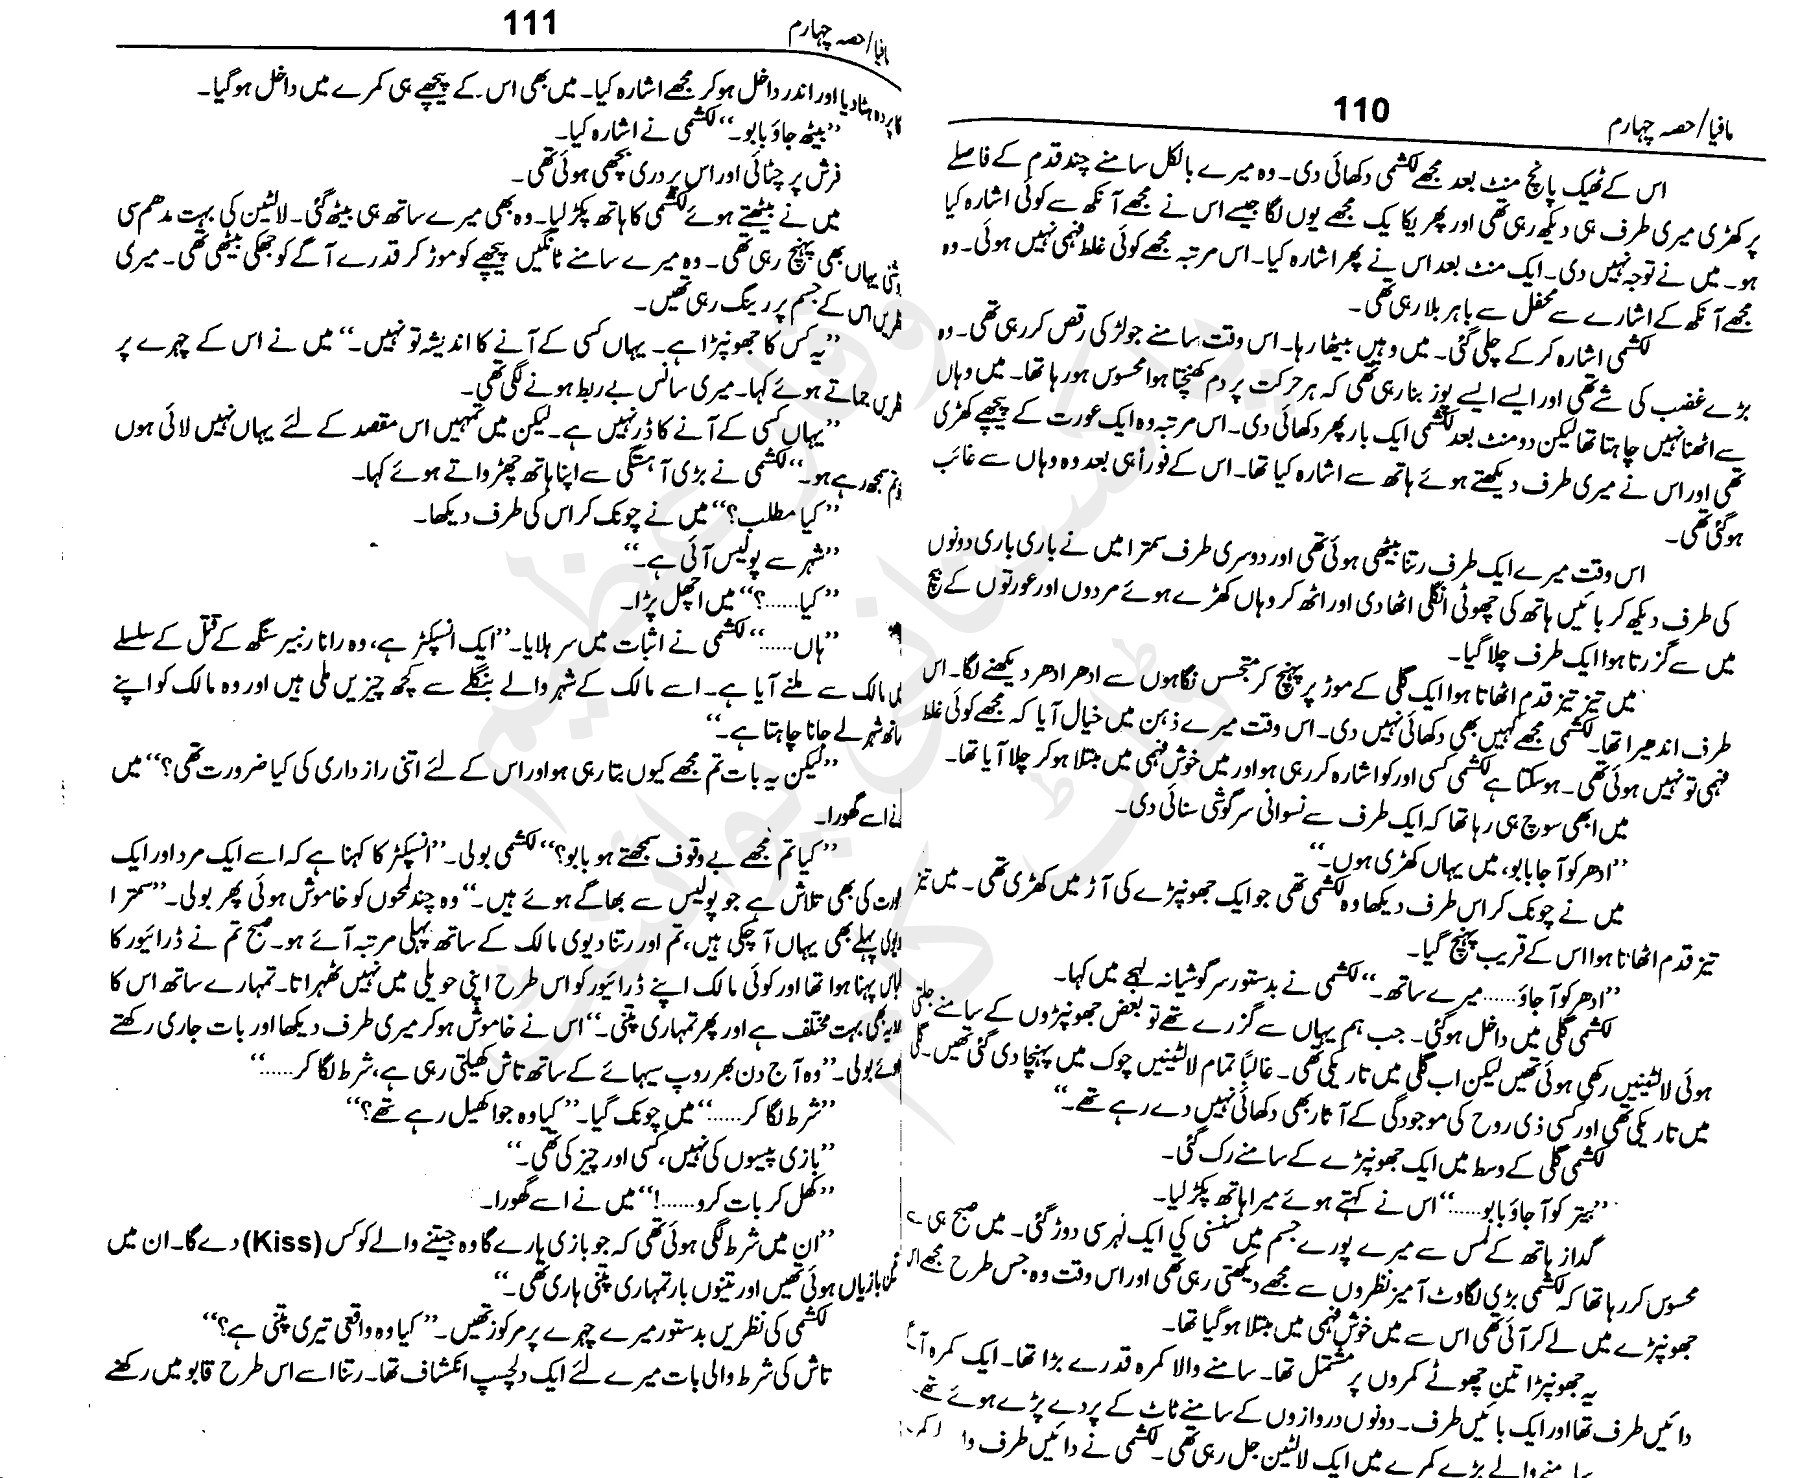 110
مافیا/حصہ چہارم
اس کے ٹھیک پانچ منٹ بعد مجھے لکشمی دکھائی دی۔ وہ میرے بالکل سامنے چند قدم کے فاصلے
پر کھڑی میری طرف ہی دیکھ رہی تھی اور پھر یکایک مجھے یوں لگا جیسے اس نے مجھے آنکھ سے کوئی اشارہ کیا
ہو۔ میں نے توجہ نہیں دی۔ ایک منٹ بعد اس نے پھر اشارہ کیا۔ اس مرتبہ مجھے کوئی غلط فہمی نہیں ہوئی۔ وہ
مجھے آنکھ کے اشارے سے محفل سے باہر بلا رہی تھی۔
لکشمی اشارہ کر کے چلی گئی۔ میں وہیں بیٹھا رہا۔ اس وقت سامنے جو لڑکی رقص کر رہی تھی۔ وہ
بڑے غضب کی شے تھی اور ایسے ایسے پوز بنا رہی تھی کہ ہر حرکت پر دم کھنچتا ہوا محسوس ہو رہا تھا۔ میں وہاں
سے اٹھنا نہیں چاہتا تھا لیکن دو منٹ بعد لکشمی ایک بار پھر دکھائی دی۔ اس مرتبہ وہ ایک عورت کے پیچھے کھڑی
تھی اور اس نے میری طرف دیکھتے ہوئے ہاتھ سے اشارہ کیا تھا۔ اس کے فوراً ہی بعد وہ وہاں سے غائب
ہو گئی تھی۔
اس وقت میرے ایک طرف رتنا بیٹھی ہوئی تھی اور دوسری طرف سمترا میں نے باری باری دونوں
کی طرف دیکھ کر بائیں ہاتھ کی چھوٹی انگلی اٹھا دی اور اٹھ کر وہاں کھڑے ہوئے مردوں اور عورتوں کے بیچ
میں سے گزرتا ہوا ایک طرف چلا گیا۔
میں تیز تیز قدم اٹھاتا ہوا ایک گلی کے موڑ پر پہنچ کر متجسس نگاہوں سے ادھر ادھر دیکھنے لگا۔ اس
طرف اندھیرا تھا۔ لکشمی مجھے کہیں بھی دکھائی نہیں دی۔ اس وقت میرے ذہن میں خیال آیا کہ مجھے کوئی غلط
فہمی تو نہیں ہوئی تھی۔ ہو سکتا ہے لکشمی کسی اور کو اشارہ کر رہی ہو اور میں خوش فہمی میں مبتلا ہو کر چلا آیا تھا۔
میں ابھی سوچ ہی رہا تھا کہ ایک طرف سے نسوانی سرگوشی سنائی دی۔
"ادھر کو آ جا بابو، میں یہاں کھڑی ہوں۔"
میں نے چونک کر اس طرف دیکھا وہ لکشمی تھی جو ایک جھونپڑے کی آڑ میں کھڑی تھی۔ میں تیز
تیز قدم اٹھاتا ہوا اس کے قریب پہنچ گیا۔
"ادھر کو آ جاؤ...... میرے ساتھ۔" لکشمی نے بدستور سرگوشیانہ لہجے میں کہا۔
لکشمی گلی میں داخل ہو گئی۔ جب ہم یہاں سے گزرے تھے تو بعض جھونپڑوں کے سامنے جلتی
ہوئی لالٹینیں رکھی ہوئی تھیں لیکن اب گلی میں تاریکی تھی۔ غالباً تمام لالٹینیں چوک میں پہنچا دی گئی تھیں۔ گلی
میں تاریکی تھی اور کسی ذی روح کی موجودگی کے آثار بھی دکھائی نہیں دے رہے تھے۔"
لکشمی گلی کے وسط میں ایک جھونپڑے کے سامنے رک گئی۔
"بیتر کو آ جاؤ بابو......" اس نے کہتے ہوئے میرا ہاتھ پکڑ لیا۔
گداز ہاتھ کے لمس سے میرے پورے جسم میں سنسنی کی ایک لہر سی دوڑ گئی۔ میں صبح ہی
محسوس کر رہا تھا کہ لکشمی بڑی لگاوٹ آمیز نظروں سے مجھے دیکھتی رہی تھی اور اس وقت وہ جس طرح مجھے
جھونپڑے میں لے کر آئی تھی اس سے میں خوش فہمی میں مبتلا ہو گیا تھا۔
یہ جھونپڑا تین چھوٹے کمروں پر مشتمل تھا۔ سامنے والا کمرہ قدرے بڑا تھا۔ ایک کمرہ
دائیں طرف تھا اور ایک بائیں طرف۔ دونوں دروازوں کے سامنے ٹاٹ کے پردے پڑے ہوئے تھے۔
سامنے والے بڑے کمرے میں ایک لالٹین جل رہی تھی۔ لکشمی نے دائیں طرف
111
مافیا/حصہ چہارم
کا پردہ ہٹا دیا اور اندر داخل ہو کر مجھے اشارہ کیا۔ میں بھی اس کے پیچھے ہی کمرے میں داخل ہو گیا۔
"بیٹھ جاؤ بابو۔" لکشمی نے اشارہ کیا۔
فرش پر چٹائی اور اس پر دری بچھی ہوئی تھی۔
میں نے بیٹھتے ہوئے لکشمی کا ہاتھ پکڑ لیا۔ وہ بھی میرے ساتھ ہی بیٹھ گئی۔ لالٹین کی بہت مدھم سی
یہاں بھی پہنچ رہی تھی۔ وہ میرے سامنے ٹانگیں پیچھے کو موڑ کر قدرے آگے کو جھکی بیٹھی تھی۔ میری
اس کے جسم پر رینگ رہی تھیں۔
"یہ کس کا جھونپڑا ہے۔ یہاں کسی کے آنے کا اندیشہ تو نہیں۔" میں نے اس کے چہرے پر
جماتے ہوئے کہا۔ میری سانس بے ربط ہونے لگی تھی۔
"یہاں کسی کے آنے کا ڈر نہیں ہے۔ لیکن میں تمہیں اس مقصد کے لئے یہاں نہیں لائی ہوں
تم سمجھ رہے ہو۔" لکشمی نے بڑی آہستگی سے اپنا ہاتھ چھڑواتے ہوئے کہا۔
"کیا مطلب؟" میں نے چونک کر اس کی طرف دیکھا۔
"شہر سے پولیس آئی ہے۔"
"کیا......؟" میں اچھل پڑا۔
"ہاں......" لکشمی نے اثبات میں سر ہلایا۔ "ایک انسپکٹر ہے، وہ رانا رنبیر سنگھ کے قتل کے سلسلے
مالک سے ملنے آیا ہے۔ اسے مالک کے شہر والے بنگلے سے کچھ چیزیں ملی ہیں اور وہ مالک کو اپنے
شہر لے جانا چاہتا ہے۔"
"لیکن یہ بات تم مجھے کیوں بتا رہی ہو اور اس کے لئے اتنی راز داری کی کیا ضرورت تھی؟" میں
نے اسے گھورا۔
"کیا تم مجھے بے وقوف سمجھتے ہو بابو؟" لکشمی بولی۔ "انسپکٹر کا کہنا ہے کہ اسے ایک مرد اور ایک
کی بھی تلاش ہے جو پولیس سے بھاگے ہوئے ہیں۔" وہ چند لمحوں کو خاموش ہوئی پھر بولی۔ "سمترا
پہلے بھی یہاں آ چکی ہیں، تم اور رتنا دیوی مالک کے ساتھ پہلی مرتبہ آئے ہو۔ صبح تم نے ڈرائیور کا
لباس پہنا ہوا تھا اور کوئی مالک اپنے ڈرائیور کو اس طرح اپنی حویلی میں نہیں ٹھہراتا۔ تمہارے ساتھ اس کا
بھی بہت مختلف ہے اور پھر تمہاری پتنی۔" اس نے خاموش ہو کر میری طرف دیکھا اور بات جاری رکھتے
بولی۔ "وہ آج دن بھر روپ سیہائے کے ساتھ تاش کھیلتی رہی ہے، شرط لگا کر......"
"شرط لگا کر......" میں چونک گیا۔ "کیا وہ جوا کھیل رہے تھے؟"
"بازی پیسوں کی نہیں، کسی اور چیز کی تھی۔"
"کھل کر بات کرو......!" میں نے اسے گھورا۔
"ان میں شرط لگی ہوئی تھی کہ جو بازی ہارے گا وہ جیتنے والے کو کس (Kiss) دے گا۔ ان میں
بازیاں ہوئی تھیں اور تینوں بار تمہاری پتنی ہاری تھی۔"
لکشمی کی نظریں بدستور میرے چہرے پر مرکوز تھیں۔ "کیا وہ واقعی تیری پتنی ہے؟"
تاش کی شرط والی بات میرے لئے ایک دلچسپ انکشاف تھا۔ رتنا اسے اس طرح قابو میں رکھنے